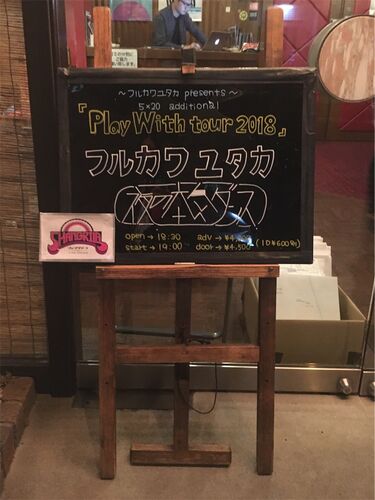 ～フルカワユタカ presents～
5×20 additional
『Play With tour 2018』
フルカワユタカ
open→18:30 adv→¥4,
start→19:00 door→¥4,500 (1D¥600別)
SHANGRILA